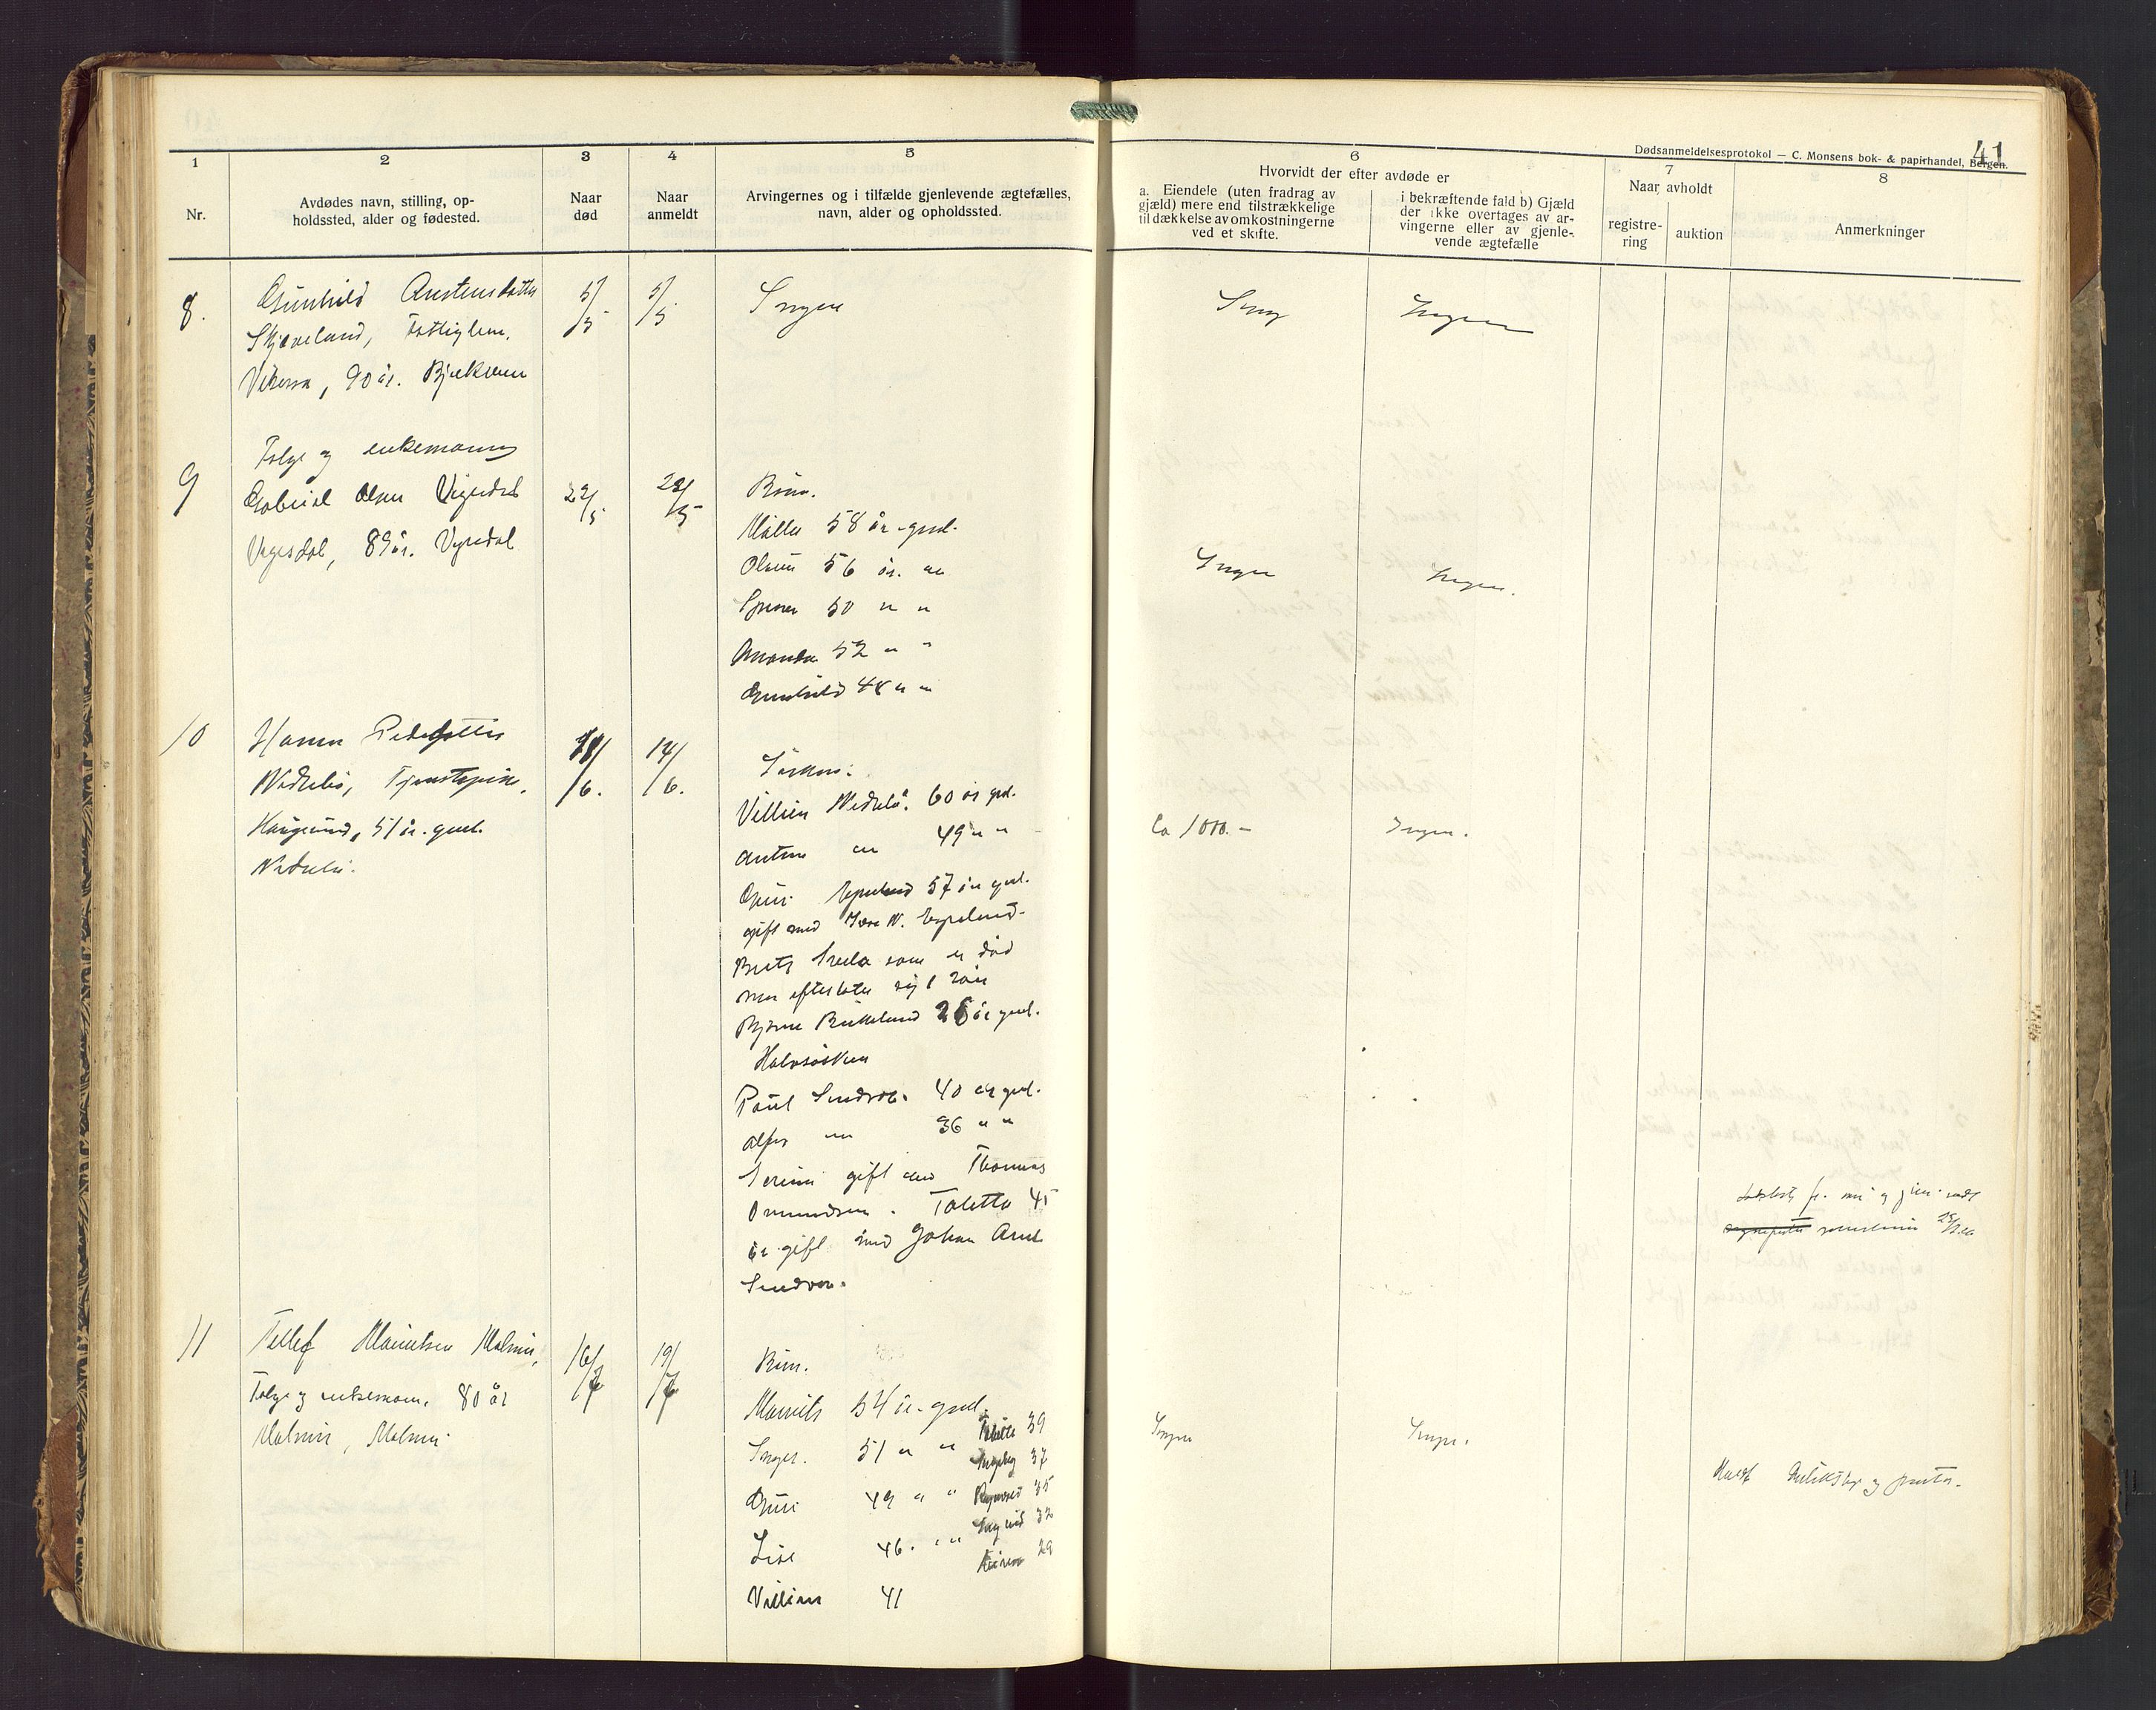 41
Dødsanmeldelsesprotokol — C. Monsens bok- & papirhandel, Bergen.
1
2
3
4
5
6
7
8
Nr.
Avdødes navn, stilling, op-
holdssted, alder og fødested.
Naar
død
Naar
anmeldt
Arvingernes og i tilfælde gjenlevende ægtefælles,
navn, alder og opholdssted.
Hvorvidt der efter avdøde er
a. Eiendele (uten fradrag av
gjæld) mere end tilstrækkelige
til dækkelse av omkostningerne
ved et skifte.
i bekræftende fald b) Gjæld
der ikke overtages av ar-
vingerne eller av gjenle-
vende ægtefælle
Naar avholdt
registre-
ring
auktion
Anmerkninger
8.
Gunhild Austensdatter
Skjæveland, Fattiglem.
90 år. Bjerkreim
5/5
5/5
Ingen
Ingen
Ingen
9
Følge og enkemann
Gabriel Olsen Vigesdal
Vigesdal, 89 år. Vigesdal
22/5
22/5
Børn.
Malla 58 år gml.
56 år. "
50 " "
Amanda 52 " "
Gunhild 48 " "
Ingen
Ingen.
10
Hanna Pedersdatter
Nedrebø, Tjenestepike,
Haugesund, 51 år. gml.
Nedrebø.
11/6.
14/6.
Søsken:
Villien Nedrebø. 60 år gml.
" 49 " "
Guri Espeland 57 år gml.
gift med N. Espeland.
som er død
men efterlater sig 1 søn
Bjarne Birkeland 26 år gml.
Halvsøsken
Paul 40 år gml.
" 36 " "
Serine gift med Thomas
Omundsen. Toletta 45
år gift med Johan
Ca 1000.-
Ingen.
11
Tellef Mauritsen Malmin,
Følge og enkemann. 80 år
Malmin, Malmin.
16/7
19/7
Børn.
Maurits 54 år. gml.
Inger. 51 " " 39
Ingeborg 37
Guri 49 " " Ragnvald 35
Sigurd 32
Lise 46. " " 29
Villien 41
Ingen
Ingen.